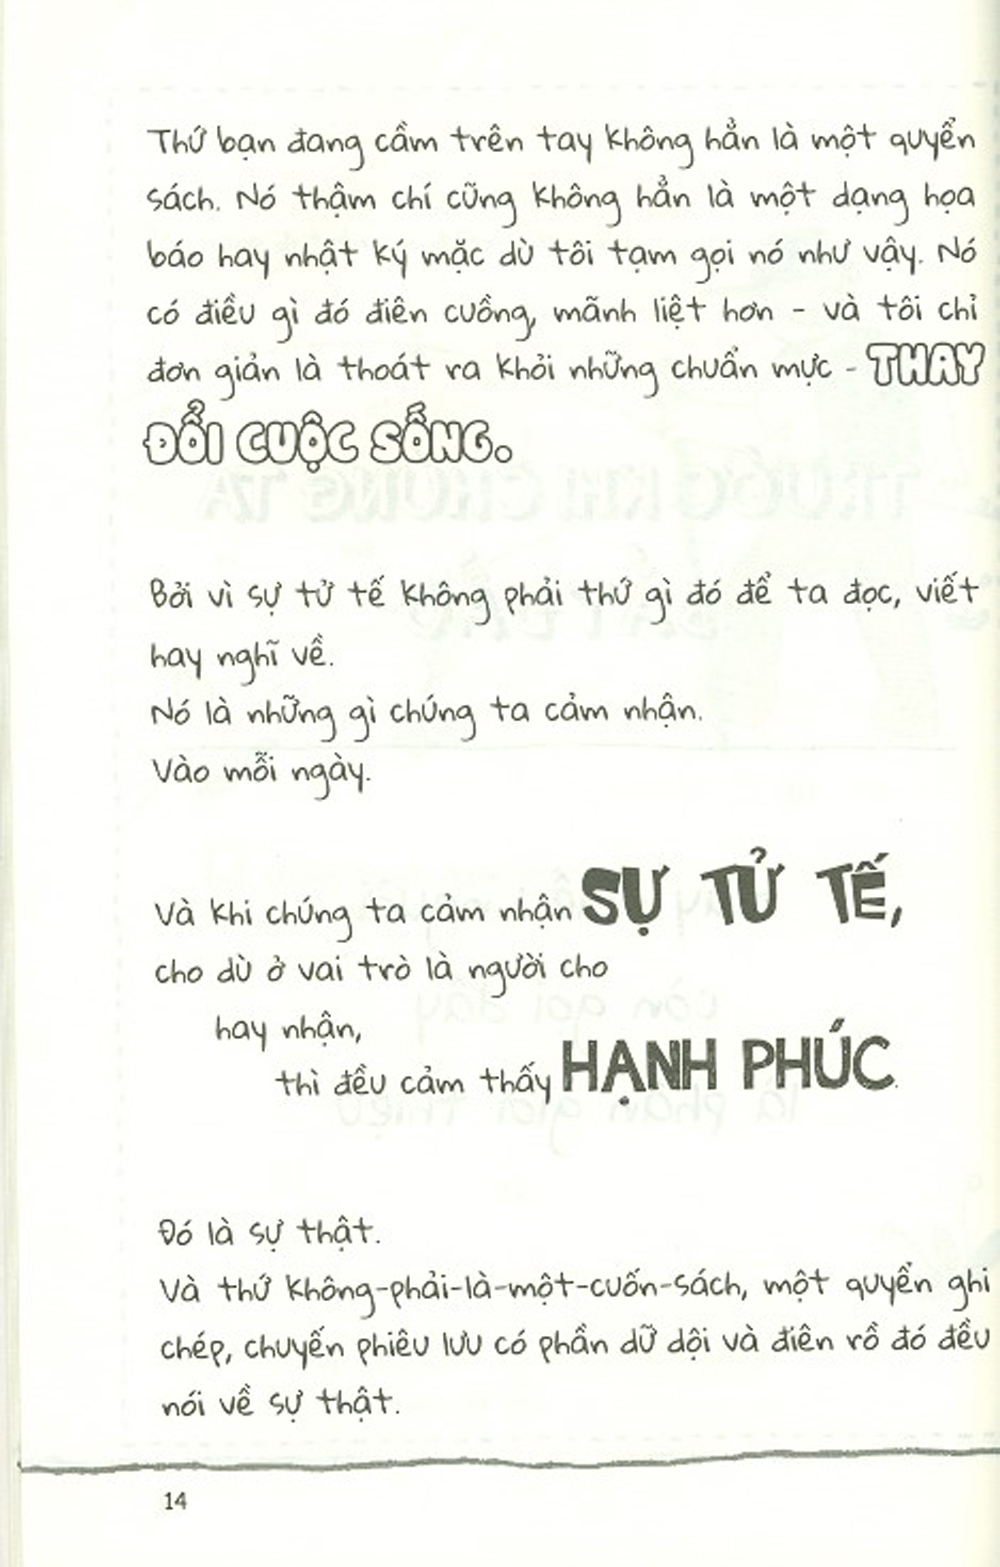 Thứ bạn đang cầm trên tay không hẳn là một quyển
sách. Nó thậm chí cũng không hẳn là một dạng họa
báo hay nhật ký mặc dù tôi tạm gọi nó như vậy. Nó
có điều gì đó điên cuồng, mãnh liệt hơn - và tôi chỉ
đơn giản là thoát ra khỏi những chuẩn mực - THAY
ĐỔI CUỘC SỐNG.
Bởi vì sự tử tế không phải thứ gì đó để ta đọc, viết
hay nghĩ về.
Nó là những gì chúng ta cảm nhận.
Vào mỗi ngày.
Và khi chúng ta cảm nhận SỰ TỬ TẾ,
cho dù ở vai trò là người cho
hay nhận,
thì đều cảm thấy HẠNH PHÚC.
Đó là sự thật.
Và thứ không-phải-là-một-cuốn-sách, một quyển ghi
chép, chuyến phiêu lưu có phần dữ dội và điên rồ đó đều
nói về sự thật.
14